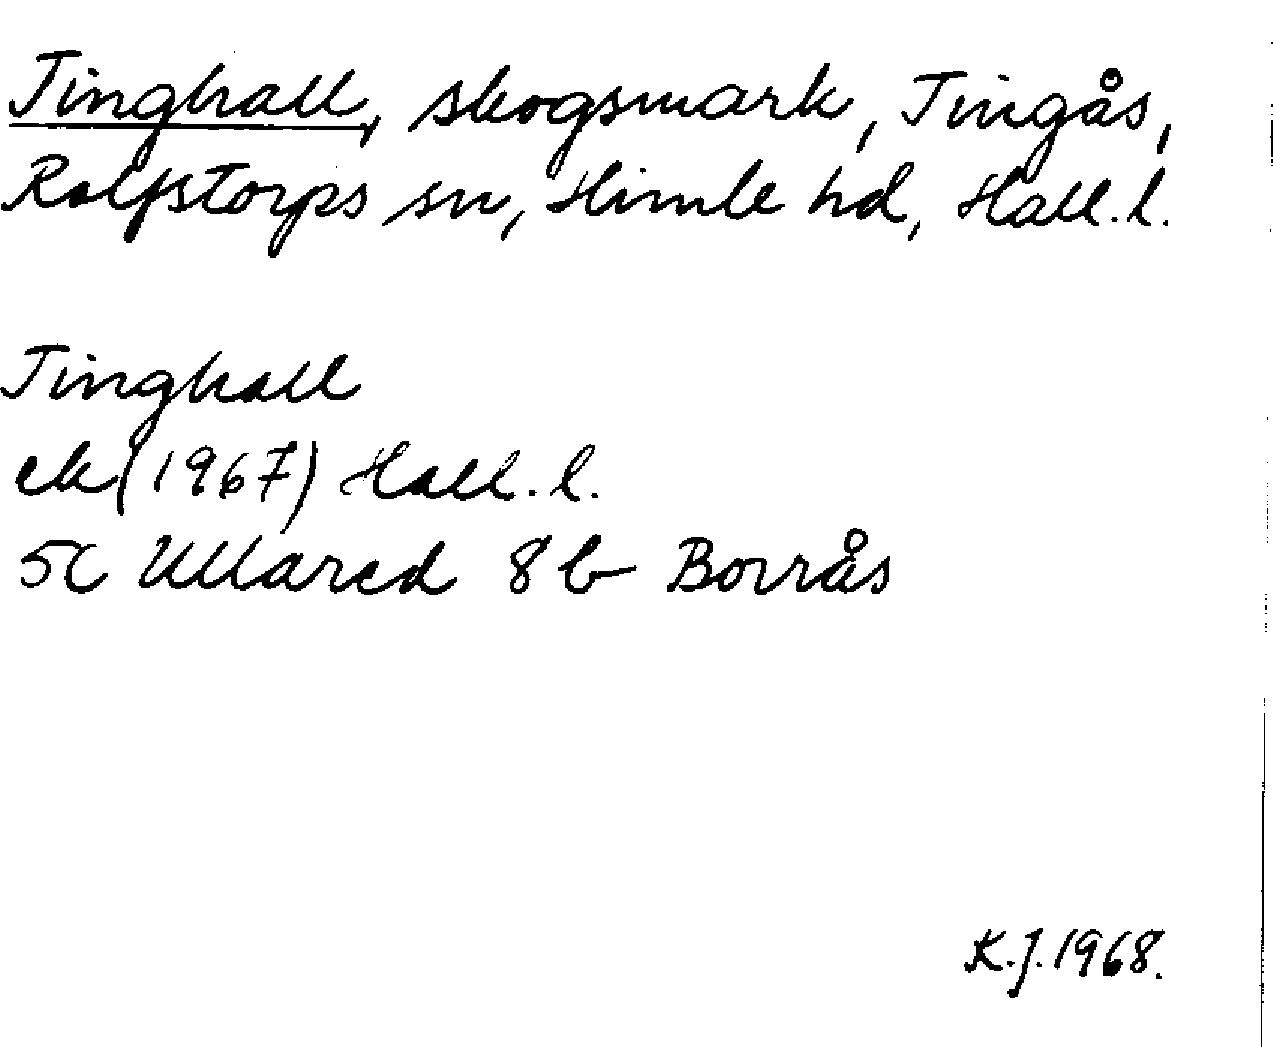 Tinghall, skogsmark, Tingås,
Rolfstorps sn, Himle hd, Hall.l.
Tinghall
ek (1967) Hall.l.
5C Ullared 8b Borrås
K.J. 1968.